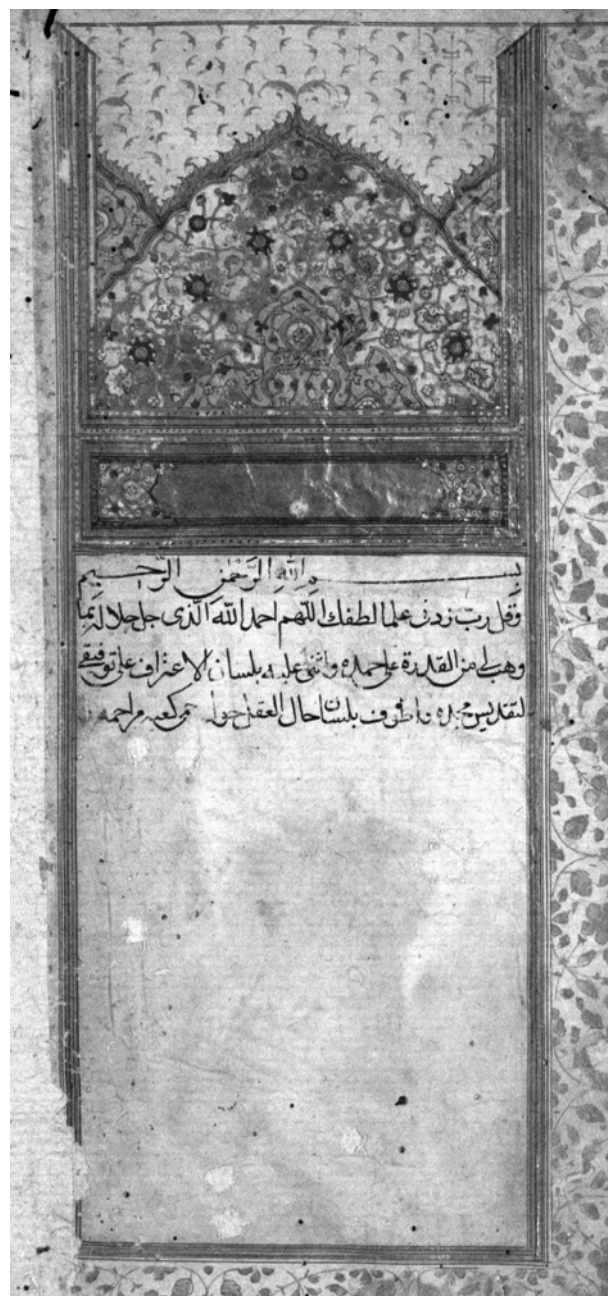 بِسْمِ اللّٰهِ الرَّحْمٰنِ الرَّحِيمِ
وقل ربّ زدنى علما الطفك اللّهم احمد اللّٰه الّذى جل جلاله بما
وهب لى من القدرة على حمده واثنى عليه بلسان الاعتراف على توفيقى
لتقديس مجده واطوف بلسان حال العقل حول حمى كعبة مراحمه